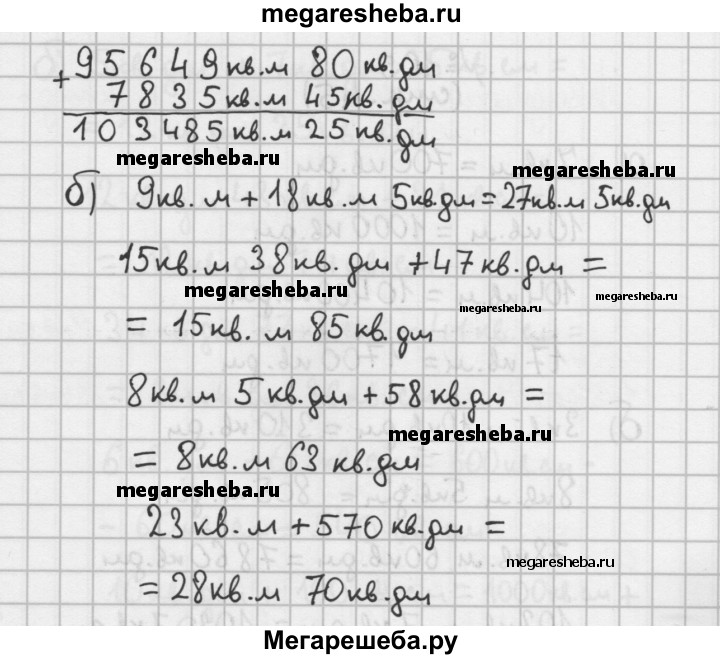 megaresheba.ru
95649 кв.м 80 кв.дм
+
7835 кв.м 45 кв.дм
103485 кв.м 25 кв.дм
megaresheba.ru
megaresheba.ru
б) 9 кв.м + 18 кв.м 5 кв.дм = 27 кв.м 5 кв.дм
15 кв.м 38 кв.дм + 47 кв.дм =
megaresheba.ru
megaresheba.ru
megaresheba.ru
= 15 кв.м 85 кв.дм
8 кв.м 5 кв.дм + 58 кв.дм =
megaresheba.ru
= 8 кв.м 63 кв.дм
megaresheba.ru
23 кв.м + 570 кв.дм =
megaresheba.ru
= 28 кв.м 70 кв.дм
Мегарешеба.ру